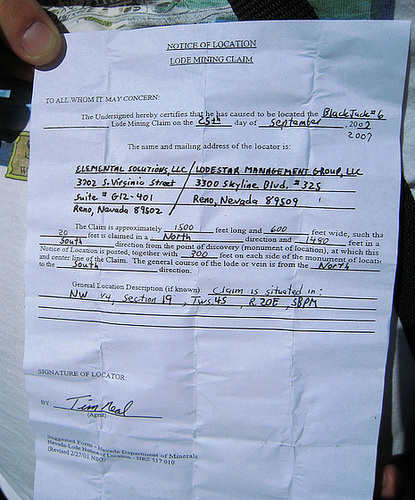 NOTICE OF LOCATION
LODE MINING CLAIM
TO ALL WHOM IT MAY CONCERN:
The Undersigned hereby certifies that he has caused to be located the BlackJack #6
Lode Mining Claim on the 25th day of September, 2007
2007
The name and mailing address of the locator is:
ELEMENTAL SOLUTIONS, LLC / LODESTAR MANAGEMENT GROUP, LLC
3702 S. Virginia Street / 3300 Skyline Blvd. #325
Suite # G12-401 / Reno, Nevada 89509
Reno, Nevada 89502
The Claim is approximately 1500 feet long and 600 feet wide, such tha
20 feet is claimed in a North direction and 1480 feet in a
South direction from the point of discovery (monument of location), at which this
Notice of Location is posted, together with 300 feet on each side of the monument of locatio
and center line of the Claim. The general course of the lode or vein is from the North
to the South direction.
General Location Description (if known): Claim is situated in:
NW 1/4, Section 19, Tws. 4S, R. 20E, SBPM
SIGNATURE OF LOCATOR:
BY: Tim Neal
(Agent)
Suggested Form - Nevada Department of Minerals
Nevada-Lode Notice of Location - NRS 517.010
(Revised 2/27/01 NSO)